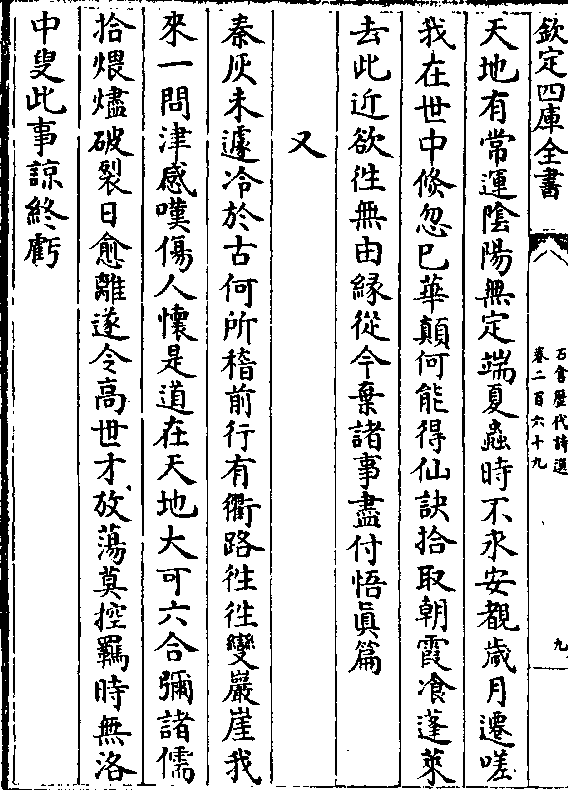 欽定四庫全書
石倉歷代詩選
卷二百六十九
九
天地有常運陰陽無定端夏蟲時不永安覩歲月遷嗟
我在世中倐忽已華顛何能得仙訣拾取朝霞飡蓬萊
去此近欲徃無由緣從今棄諸事盡付悟眞篇
又
秦灰未遽冷於古何所稽前行有衢路徃徃變巖崖我
來一問津感嘆傷人懷是道在天地大可六合彌諸儒
拾煨燼破裂日愈離遂令高世才放蕩莫控羈時無洛
中叟此事諒終虧